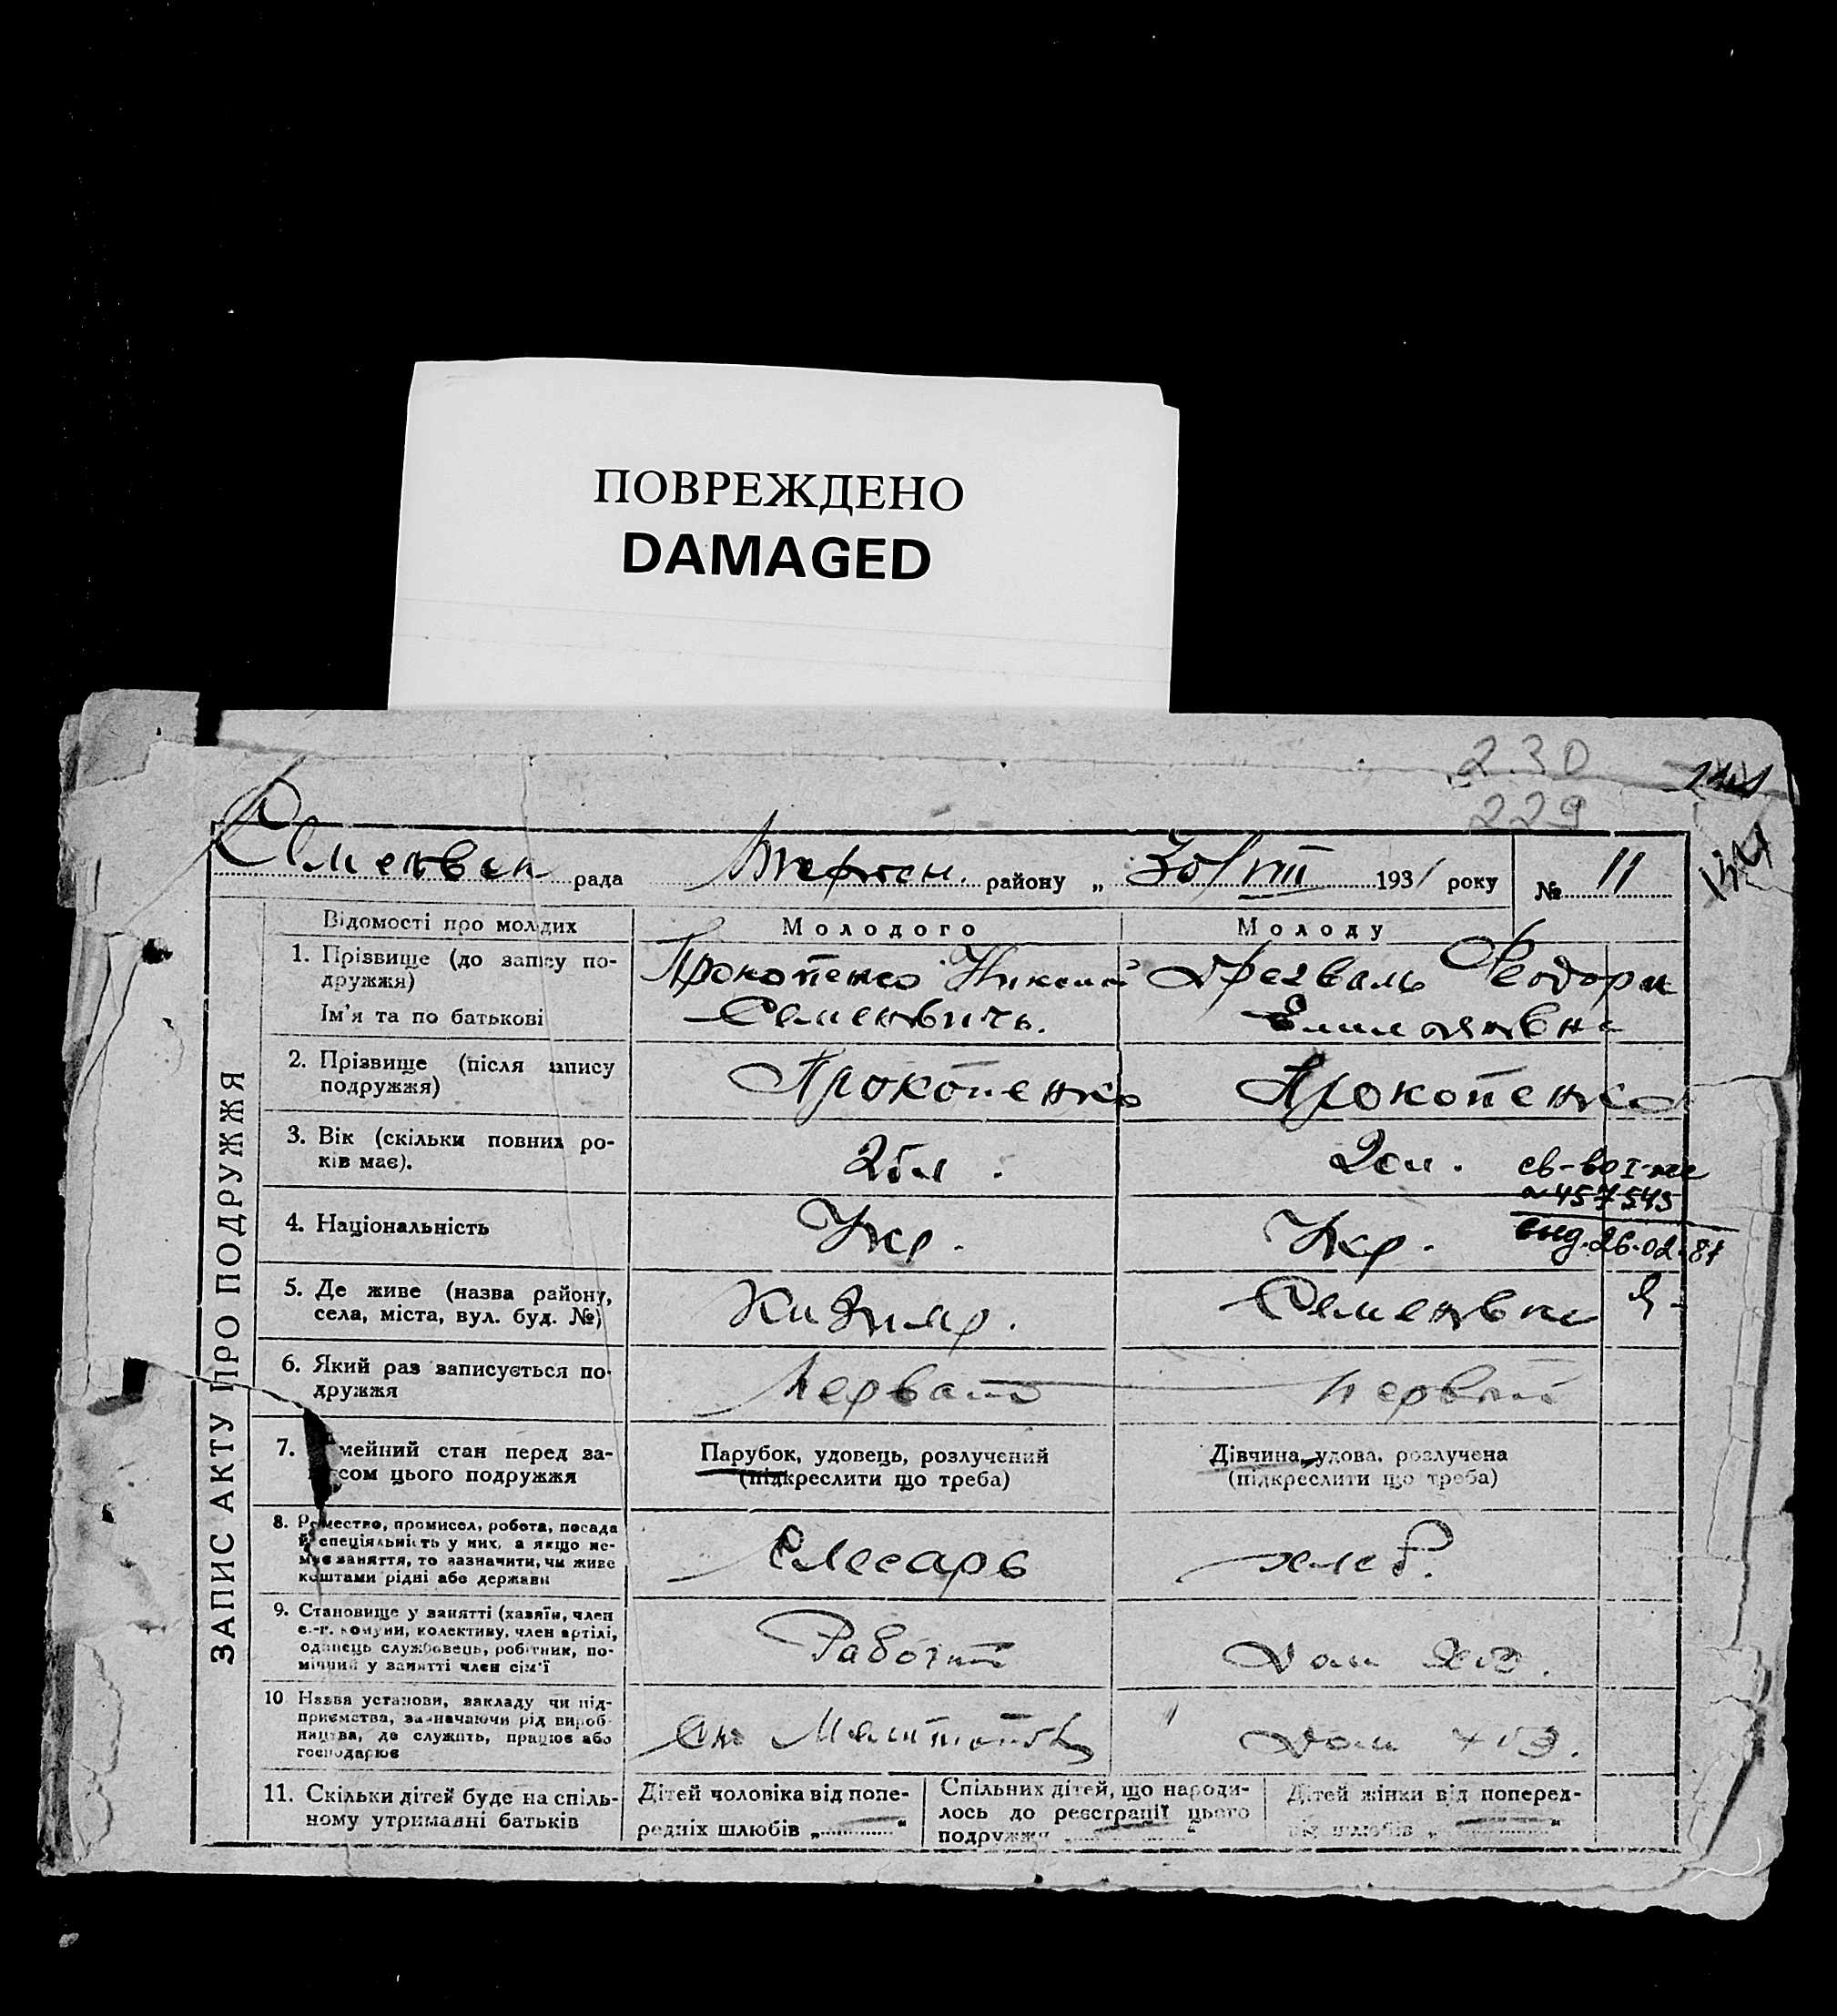 ПОВРЕЖДЕНО
DAMAGED
230
229
рада району „ 30/VIII 1931 року № 11
Відомості про молодих Молодого Молоду
1. Прізвище (до запису подружжя) Прокопенко Николай Феодора
Ім'я та по батькові Семенович. Емельяновна
2. Прізвище (після запису
подружжя) Прокопенко Прокопенко
3. Вік (скільки повних ро-
ків має). 25 л. 20 л.
св-во I-
№ 457545
выд. 26.02.81
4. Національність Укр. Укр.
5. Де живе (назва району,
села, міста, вул. буд. №) Семеновка
6. Який раз записується по-
дружжя Первый первый
7. мейний стан перед за-
сом цього подружжя
Парубок, удовець, розлучений
(підкреслити що треба)
Дівчина, удова, розлучена
(підкреслити що треба)
8. Ремество, промисел, робота, посада
й спеціяльність у них, а якщо не-
має заняття, то зазначити, чи живе
коштами рідні або держави
Слесарь хлеб.
9. Становище у занятті (хазяїн, член
с.-г. комуни, колективу, член артілі,
одинець службовець, робітник, по-
мічний у занятті член сім'ї
Рабочий Дом хоз.
10 Назва установи, закладу чи під-
приємства, зазначаючи рід вироб-
ництва, де служить, працює або
господарює
Дом хоз.
11. Скільки дітей буде на спіль-
ному утриманні батьків
Дітей чоловіка від попе-
редніх шлюбів „ — “
Спільних дітей, що народи-
лось до реєстрації цього
подружжя „ — “
Дітей жінки від поперед-
ніх шлюбів „ — “
ЗАПИС АКТУ ПРО ПОДРУЖЖЯ